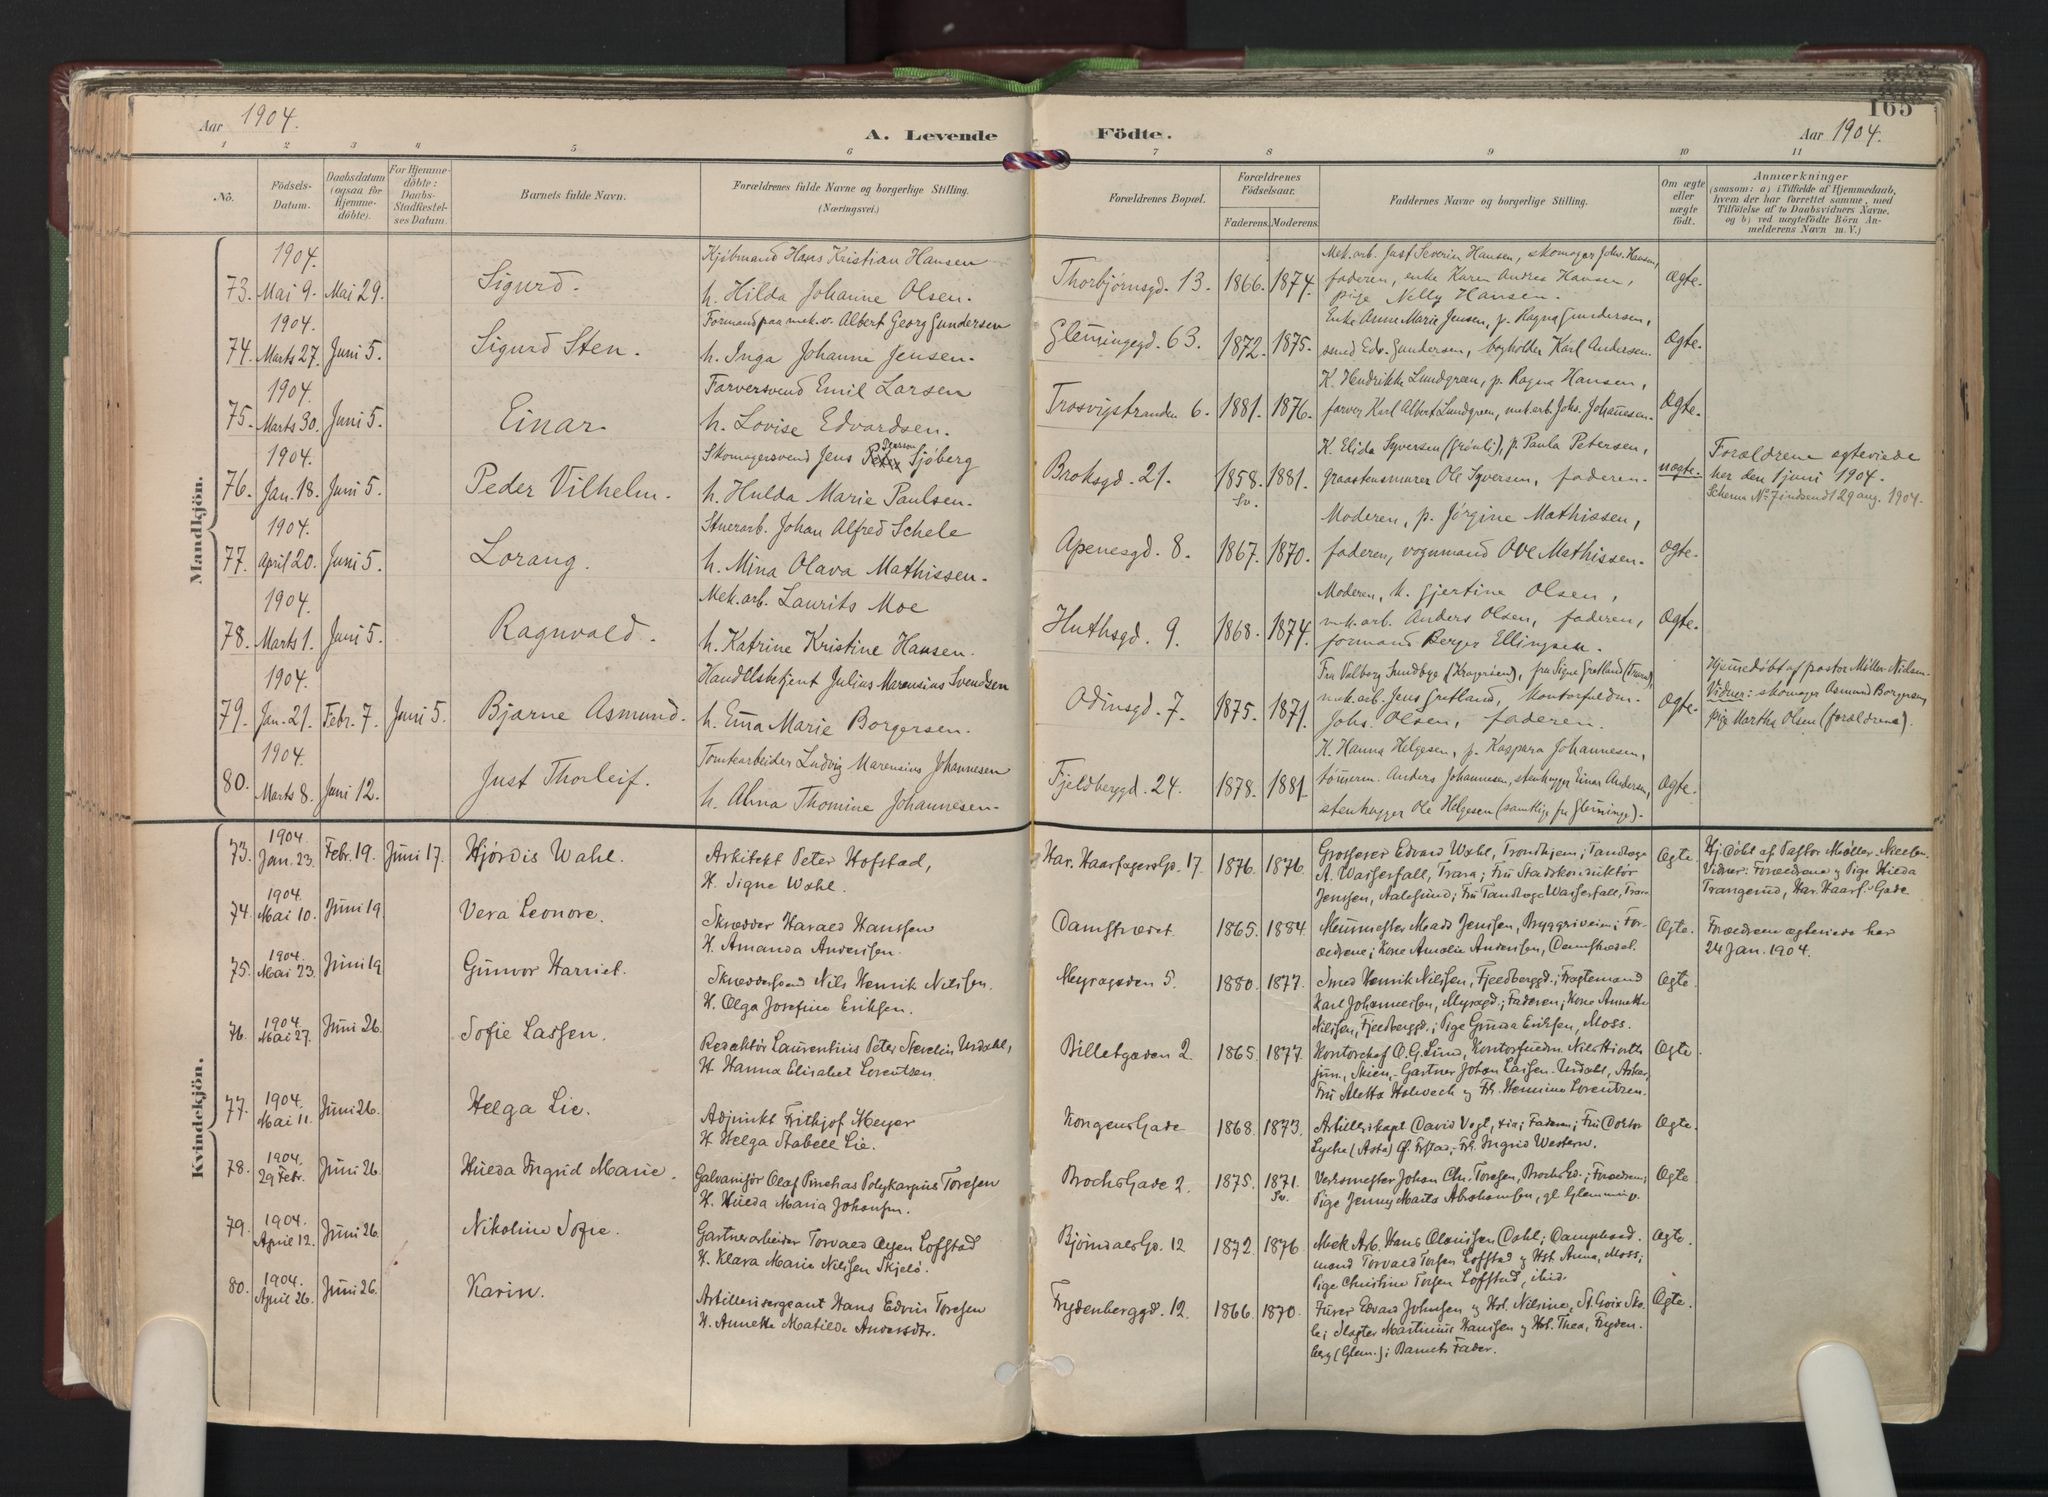 Aar 1904.
A. Levende Födte.
Aar 1904.
165
1 2 3 4 5 6 7 8 9 10 11
No.
Födsels-Datum.
Daabsdatum (ogsaa for Hjemme-döbte).
For Hjemme-döbte: Daabs-Stadfæstelses Datum.
Barnets fulde Navn.
Forældrenes fulde Navne og borgerlige Stilling.
(Næringsvei.)
Forældrenes Bopæl.
Forældrenes Födselsaar.
Faderens. Moderens.
Faddernes Navne og borgerlige Stilling.
Om ægte eller uægte födt.
Anmærkninger
(saasom: a) i Tilfælde af Hjemmedaab,
hvem der har forrettet samme, med
Tilföielse af to Daabsvidners Navne,
og b) ved uægtefödte Börn An-
melderens Navn m. V.)
Mandkjön.
73. 1904. Mai 9. Mai 29. Sigurd.
Kjøbmand Hans Kristian Hansen
h. Hilda Johanne Olsen.
Thorbjørnsgd. 13. 1866. 1874.
Mek.arb. Just Severin Hansen, skomager Johs. Hansen,
faderen, enke Karen Andrea Hansen,
pige Nelly Hansen.
Ægte.
74. 1904. Marts 27. Juni 5. Sigurd Sten.
Formand paa mek.v. Albert Georg Gundersen
h. Inga Johanne Jensen.
Glemmingegd. 63. 1872. 1875.
Enke Anne Marie Jensen, p. Ragna Gundersen,
smed Edv. Gundersen, bogholder Karl Andersen.
Ægte.
75. 1904. Marts 30. Juni 5. Einar
Farversvend Emil Larsen
h. Lovise Edvardsen.
Trosvigstranden 6. 1881. 1876.
K. Hendrikke Lundgreen, p. Ragna Hansen,
farver Karl Albert Lundgreen, mek.arb. Johs. Johanssen.
Ægte.
76. 1904. Jan. 18. Juni 5. Peder Vilhelm.
Skomagersvend Jens Persson Sjöberg
h. Hulda Marie Paulsen.
Broksgd. 21. 1858. Sv. 1881.
K. Elida Syversen (Grönli), p. Paula Petersen,
graastensmurer Ole Syversen, faderen.
uægte.
Forældrene ægteviede
her den 1 juni 1904.
Schema No 7 indsend 29 aug. 1904.
77. 1904. April 20. Juni 5. Lorang.
Stuerarb. Johan Alfred Schele
h. Mina Olava Mathissen.
Apenesgd. 8. 1867. 1870.
Moderen, p. Jørgine Mathissen,
faderen, vognmand Ove Mathissen.
ægte.
78. 1904. Marts 1. Juni 5. Ragnvald.
Mek.arb. Laurits Moe
h. Katrine Kristine Hansen.
Huthsgd. 9. 1868. 1874.
Moderen, k. Gjertine Olsen,
mek.arb. Anders Olsen, faderen,
formand Berger Ellingsen.
Ægte.
79. 1904. Jan. 21. Febr. 7. Juni 5. Bjarne Asmund.
Handelsbetjent Julius Marensius Svendsen
h. Ema Marie Borgersen.
Odinsgd. 7. 1875. 1871.
Fru Valborg Sundbye (Kragerøen), fru Signe Gretland (Trara),
mek.arb. Jens Gretland, kontorfuldm.
Johs. Olsen, faderen.
Ægte.
Hjemmedøbt af pastor Møller-Nilsen
Vidner: skomager Asmund Borgersen,
pige Martha Olsen (forældrene).
80. 1904. Marts 8. Juni 12. Just Thorleif.
Tomtearbeider Ludvig Marensius Johannesen
h. Alma Thomine Johannesen.
Fjeldberggd. 24. 1878. 1881.
K. Hanna Helgesen, p. Kaspara Johannesen,
tömerm. Anders Johannesen, stenhugger Einar Andersen,
stenhugger Ole Helgesen (samtlige fra Glemminge).
Ægte.
Kvindekjön.
73. 1904. Jan. 23. Febr. 19. Juni 17. Hjördis Wahl.
Arkitekt Peter Hofstad,
H. Signe Wahl.
Har. Haarfagersgd. 17. 1876. 1876.
Grosserer Edvard Wahl, Trondhjem; Tandlæge
A. Wasserfall, Trara; Frü Stadskonduktör
Jenssen, Aalesund; Frü Tandlæge Wasserfall, Trara
Ægte.
Hj. döbt af Pastor Møller-Nielsen.
Vidner: Forældrene og Pige Hilda
Trangerud, Har. Haarf. Gade.
74. 1904. Mai 10. Juni 19. Vera Leonore.
Skrædder Harald Hanssen
H. Amanda Anderssen.
Damstrædet. 1865. 1884.
Meurmester Mads Jenssen, Bryggriveien; For-
ældrene; Kone Amalie Andersen, Damstrædet.
Ægte.
Forældrene ægteviede her
24 Jan. 1904.
75. 1904. Mai 23. Juni 19 Gunvor Harriet.
Skræddersvend Nils Henrik Nilssen.
H. Olga Josefine Eriksen.
Myragaden 5. 1880. 1877.
Smed Henrik Nilssen, Fjeldberggd.; Fragtemand
Karl Johannessen, Myragd.; Faderen; Kone Annette
Nilssen, Fjeldberggd.; Pige Gunda Eriksen, Moss.
Ægte.
76. 1904. Mai 27. Juni 26 Sofie Lassen.
Redaktör Laurentius Peter Severin Urdahl,
H. Hanna Elisabet Lorentsen.
Billetgaden 2. 1865. 1877.
Kontorchef O.G. Lund, Kontorfuldm. Nils Hiorth
jun., Skien, Gartner Johan Lassen-Urdahl, Asker,
Frü Aletta Holwech og Frk. Hennine Lorentzen.
Ægte
77. 1904. Mai 11. Juni 26. Helga Lie.
Adjunkt Frithjof Meyer
H. Helga Stabell Lie.
Kongens Gade 1868. 1873.
Artillerikapt. David Vogt, Faderen; Frü Doktor
Lyche (Asta) Frstad; Frk. Ingrid Western.
Ægte.
78. 1904. 29 Febr. Juni 26. Hulda Ingrid Marie.
Galvanisör Olaf Pinehas Polykarpus Toresen
H. Hulda Maria Johansen.
Brochs Gade 2. 1875. 1871. Sv.
Verksmester Johan Chr. Toresen, Brochs Gd.; Forældrene;
Pige Jenny Marta Abrahamsen, gl. Glemming.
Ægte
79. 1904. April 12. Juni 26. Nikoline Sofie.
Gartnerarbeider Torvald Olsen Lofstad
H. Klara Marie Nilssen Skjelö.
Bjørndalsgd. 12 1872. 1876.
Mek. Arb. Hans Olaussen Dahl; Damphand.
mand Torvald Torsen Loffstad og Hst. Anna, Moss;
Pige Christine Torsen Loffstad, ibid.
Ægte.
80. 1904. April 26. Juni 26. Karin.
Artillerisergeant Hans Edvin Toresen
H. Annette Matilde Andersdtr.
Frydenberggd. 12. 1866. 1870.
Fürer Edvard Johnsen og Hst. Nilsine, St. Croix Sko-
le; Slagter Martinius Hanssen og Hst. Thea, Fryden-
berg (Glem.); Barnets Fader.
Ægte.